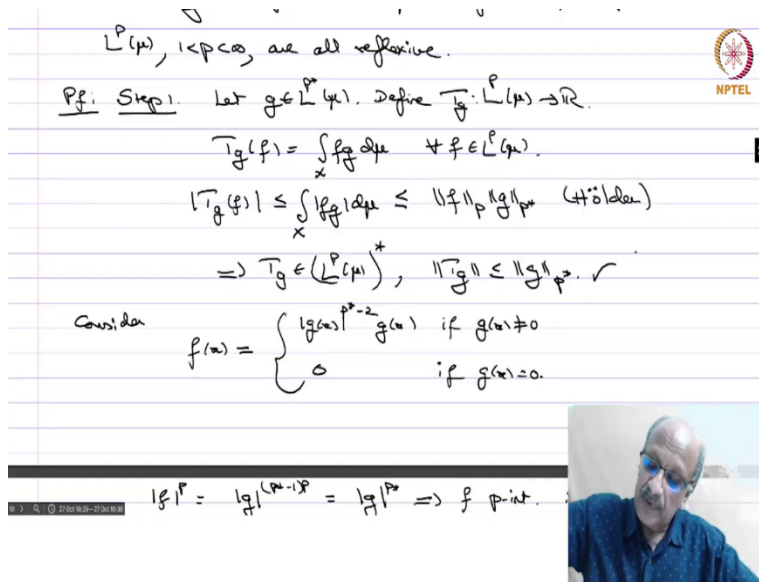 L^p(μ), 1<p<∞, are all reflexive.
NPTEL
Pf: Step 1. Let g∈L^{p*}(μ). Define T_g: L^p(μ)→ℝ.
T_g(f) = ∫_X fg dμ ∀ f∈L^p(μ).
|T_g(f)| ≤ ∫_X |fg| dμ ≤ ‖f‖_p ‖g‖_{p*} (Hölder)
⇒ T_g ∈ (L^p(μ))^*, ‖T_g‖ ≤ ‖g‖_{p*}. ✓
Consider
f(x) = { |g(x)|^{p*-2} g(x) if g(x)≠0
0 if g(x)=0.
|f|^p = |g|^{(p*-1)p} = |g|^{p*} ⇒ f p-int.
27 Oct 16:25 – 27 Oct 16:38